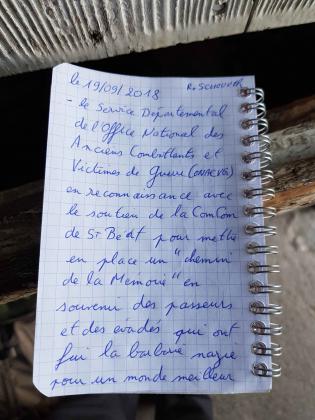 le 19/09/2018 R. SCHOUVER
- le Service Départemental
de l'Office National des
Anciens Combattants et
Victimes de Guerre (ONACVG)
en reconnaissance avec
le soutien de la ComCom
de St Béat pour mettre
en place un "chemin
de la Mémoire" en
souvenir des passeurs
et des évadés qui ont
fui la barbarie nazie
pour un monde meilleur